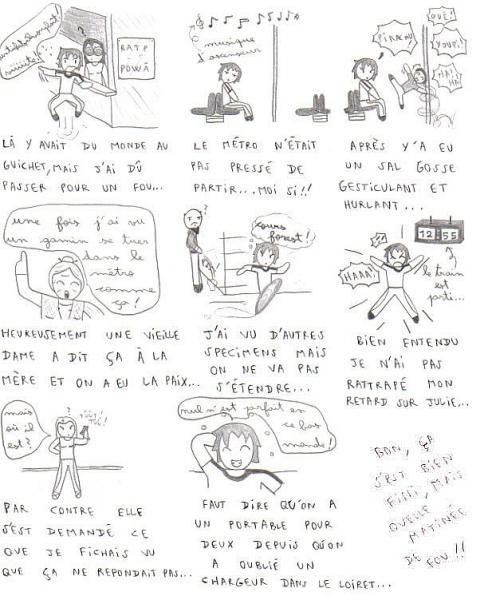 RATP
POWÂ
LÀ Y AVAIT DU MONDE AU
GUICHET, MAIS J'AI DÛ
PASSER POUR UN FOU...
musique
d'ascenseur
LE MÉTRO N'ÉTAIT
PAS PRESSÉ DE
PARTIR... MOI SI!!
OUÉ!
YOUPI!
HAHA
HA!
APRÈS Y'A EU
UN SAL GOSSE
GESTICULANT ET
HURLANT...
une fois j'ai vu
un gamin se tuer
dans le
métro
comme
ça!
HEUREUSEMENT UNE VIEILLE
DAME A DIT ÇA À LA
MÈRE ET ON A EU LA PAIX...
cours
forest!
J'AI VU D'AUTRES
SPECIMENS MAIS
ON NE VA PAS
S'ÉTENDRE...
12:55
HAAA!
le train
est
parti...
BIEN ENTENDU
JE N'AI PAS
RATTRAPÉ MON
RETARD SUR JULIE...
mais
où il
est?
TÛÛT
TÛÛ!
PAR CONTRE ELLE
S'EST DEMANDÉ CE
QUE JE FICHAIS VU
QUE ÇA NE REPONDAIT PAS...
nul n'est parfait en
ce bas
monde!
FAUT DIRE QU'ON A
UN PORTABLE POUR
DEUX DEPUIS QU'ON
A OUBLIÉ UN
CHARGEUR DANS LE LOIRET...
BON, ÇA
S'EST BIEN
FINI, MAIS
QUELLE
MATINÉE
DE FOU!!